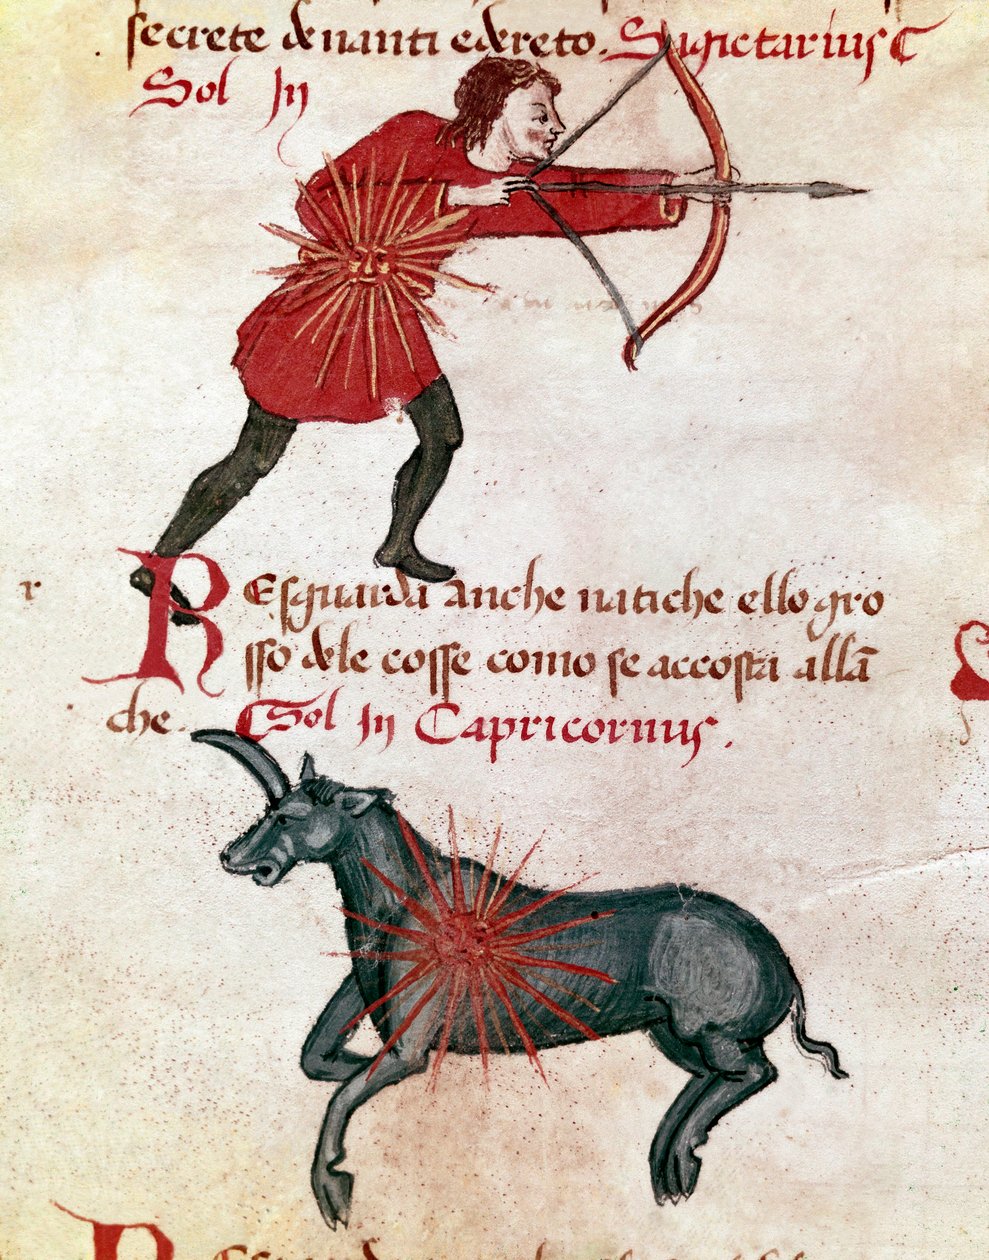 secrete denanti edereto. Sagictarius
Sol In
r
REsguarda anche natiche ello gro
sso dele cosse como se accosta allā
che. Sol In Capricornus.